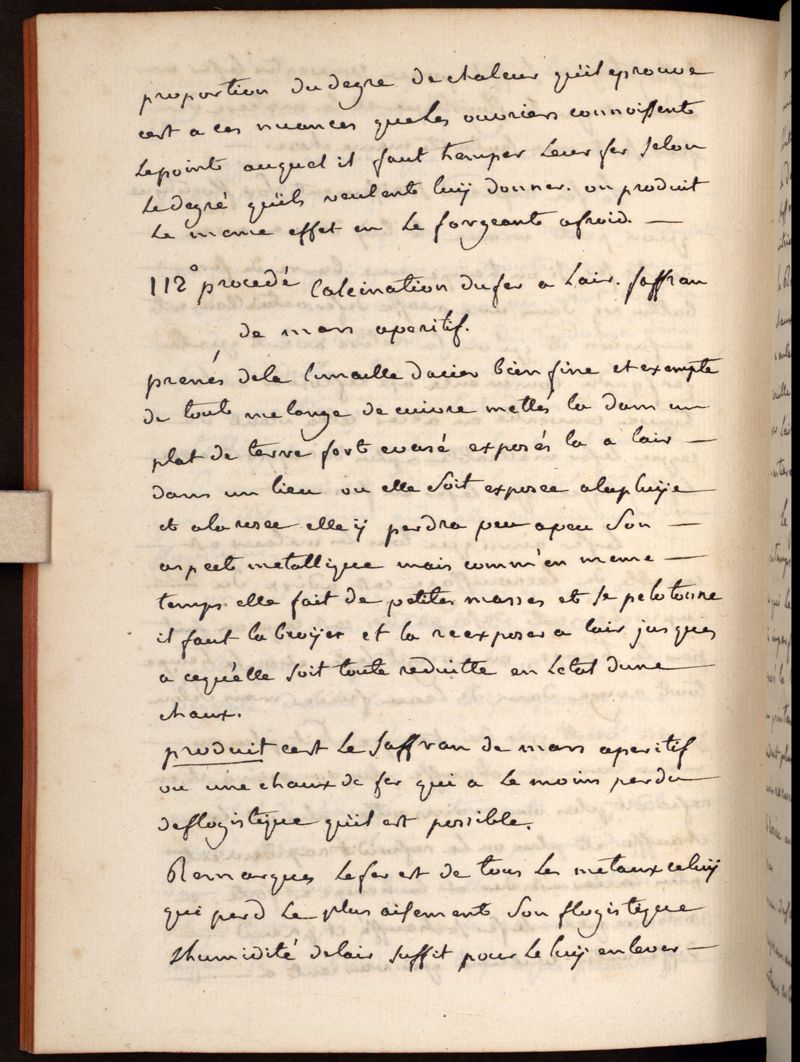 proportion du degre de chaleur qu'il eprouve
cest a ces nuances que les ouvriers connoissent
le point auquel il faut tremper leur fer selon
le degré quils veulent luy donner. on produit
le meme effet en le forgeant a froid. —
112° procedé Calcination du fer a lair. saffran
de mars aperitif.
prenés de la limaille dacier bien fine et exempte
de tout melange de cuivre mettés la dans un
plat de terre fort evasé exposés la a lair —
dans un lieu ou elle soit exposee a la pluÿe
et a la rosee elle ÿ perdra peu a peu son —
aspect metallique mais comm'en meme —
temps elle fait de petites masses et se pelotonne
il faut la broÿer et la reexposer a lair jusques
a ce qu'elle soit toute reduitte en letat dune
chaux.
produit cest le saffran de mars aperitif
ou une chaux de fer qui a le moins perdu
deflogistique quil est possible.
Remarques le fer est de tous les metaux celuÿ
qui perd le plus aisement son flogistique
lhumidité de lair suffit pour le luÿ enlever —